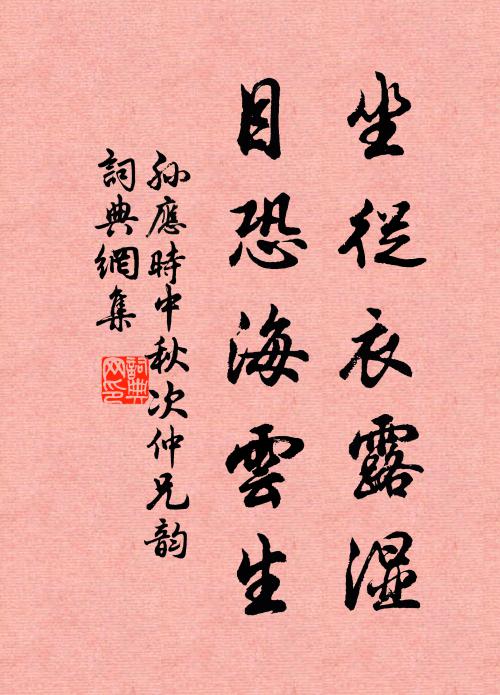 坐從衣露濕
目恐海雲生
孫應時中秋次仲兄韵
詞典網集
詞典網印